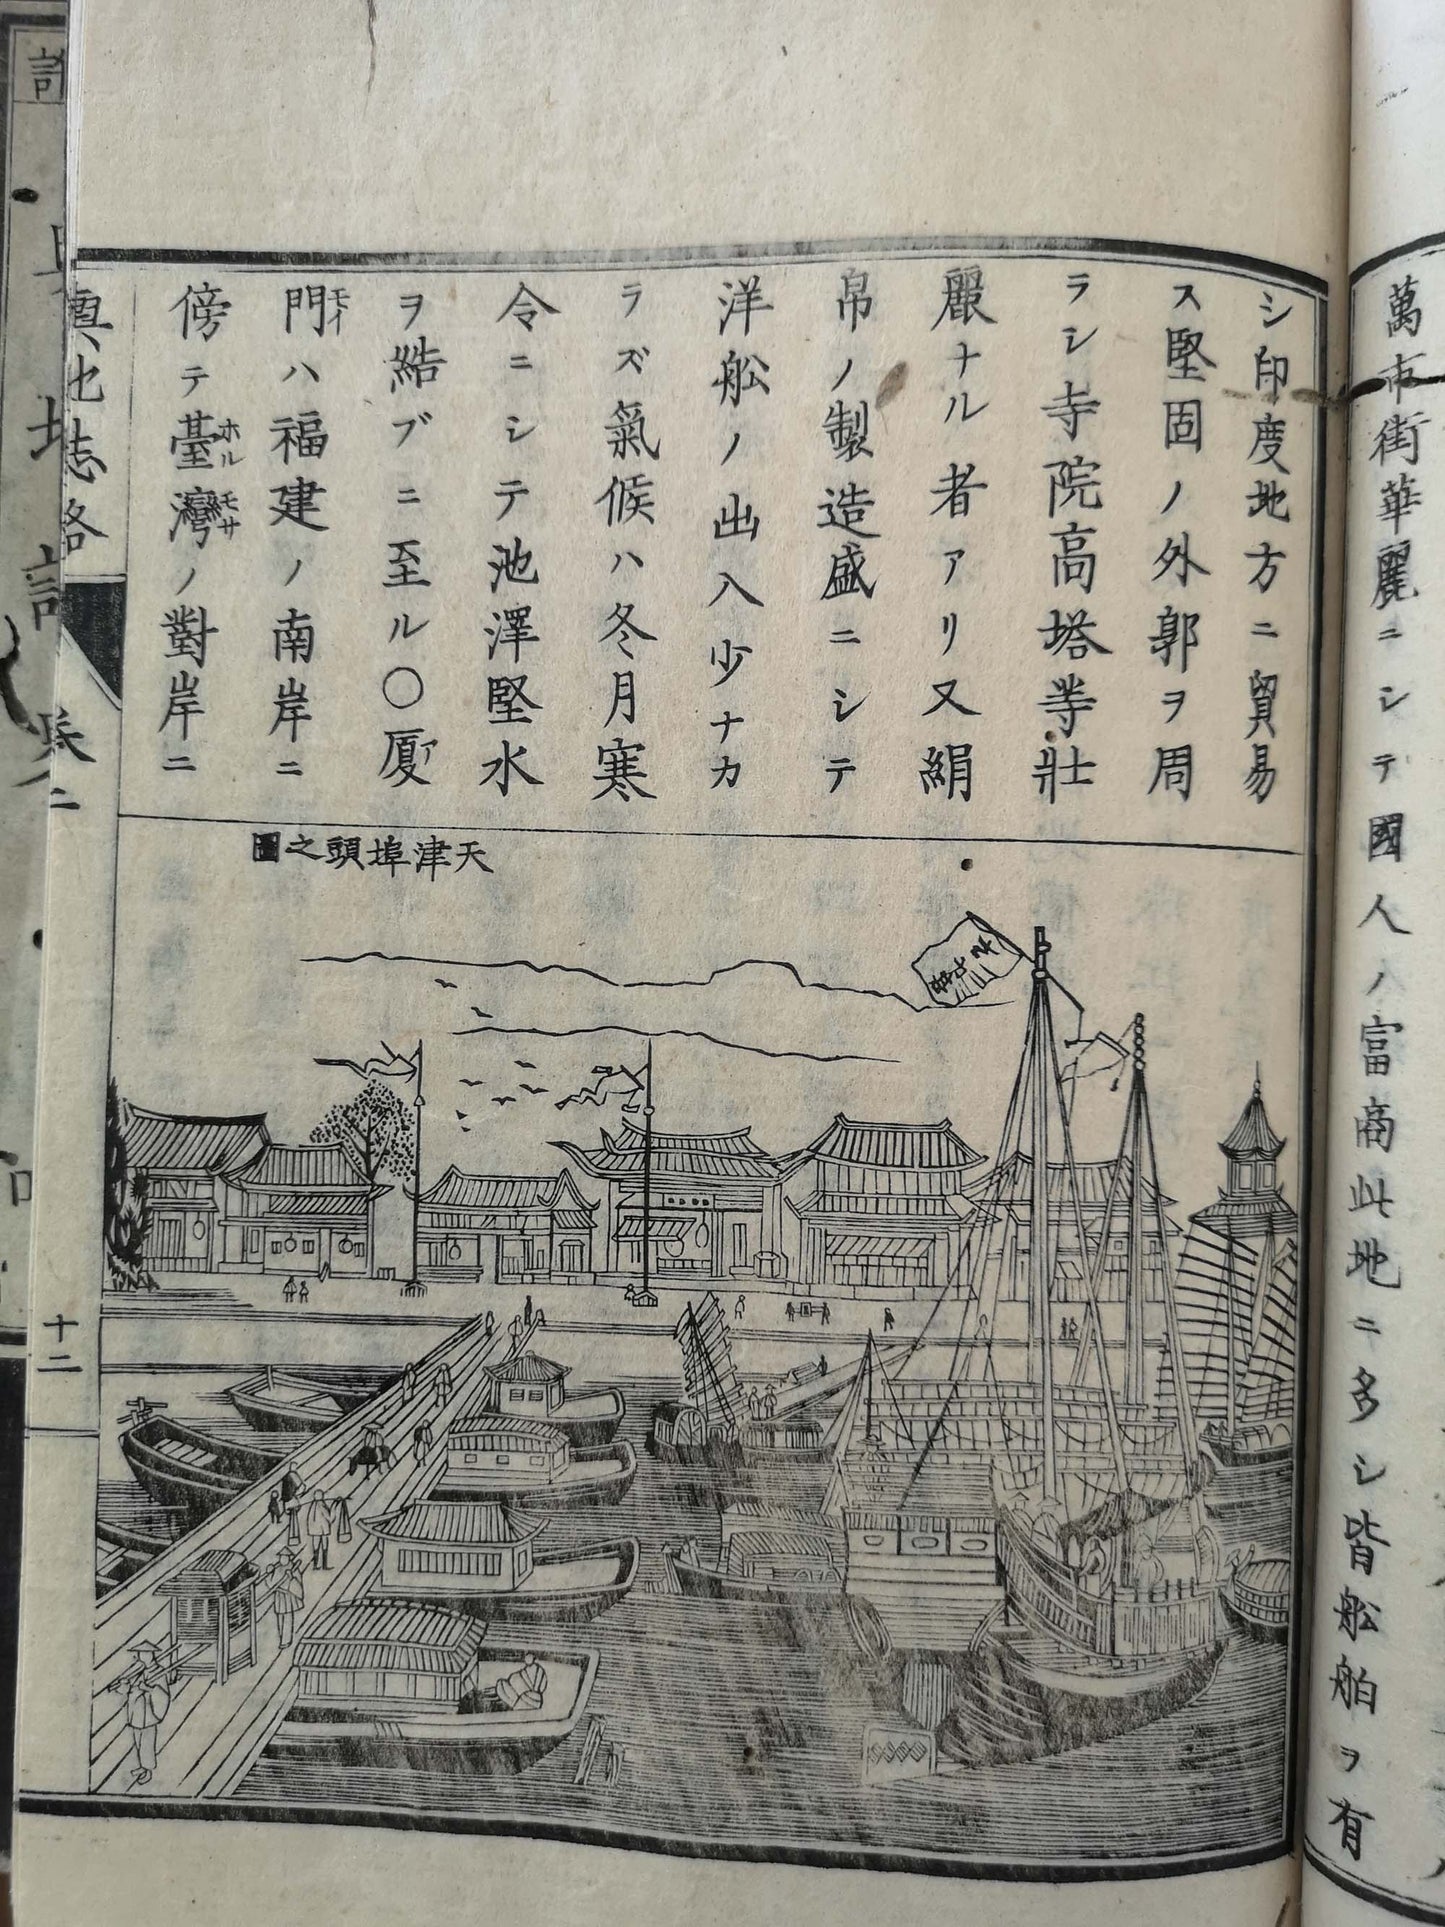 萬市街華麗ニシテ國人ノ富商此地ニ多シ皆船舶ヲ有
シ印度地方ニ貿易
ス堅固ノ外郭ヲ周
ラシ寺院高塔等壯
麗ナル者アリ又絹
帛ノ製造盛ニシテ
洋船ノ出入少ナカ
ラズ氣候ハ冬月寒
令ニシテ池澤堅水
ヲ結ブニ至ル〇厦ア
門モイハ福建ノ南岸ニ
傍テ臺灣ホルモサノ對岸ニ
天津埠頭之圖
地誌略
卷二
十二